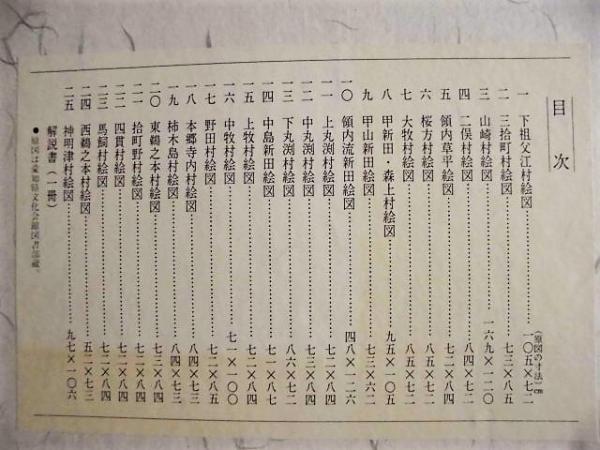 目次
（原図の寸法）cm
一 下祖父江村絵図……一〇五×七二
二 三拾町村絵図……七三×八五
三 山崎村絵図……一六九×一二〇
四 二俣村絵図……七二×八四
五 領内草平絵図……七二×八四
六 桜方村絵図……八五×七二
七 大牧村絵図……八五×七二
八 甲新田・森上村絵図……九五×一〇五
九 甲山新田絵図……七三×六二
一〇 領内流新田絵図……四八×一二六
一一 上丸渕村絵図……七二×八四
一二 中丸渕村絵図……七三×八四
一三 下丸渕村絵図……八六×七二
一四 中島新田絵図……七一×八七
一五 上牧村絵図……七二×八四
一六 中牧村絵図……七一×一〇〇
一七 野田村絵図……七二×八五
一八 本郷寺内村絵図……八四×七三
一九 柿木島村絵図……八四×七三
二〇 東鵜之本村絵図……七二×八四
二一 拾町野村絵図……七二×八四
二二 四貫村絵図……七二×八四
二三 馬飼村絵図……七二×八四
二四 西鵜之本村絵図……五二×七三
二五 神明津村絵図……九七×一〇六
解説書（一冊）
●原図は愛知県文化会館図書部蔵。